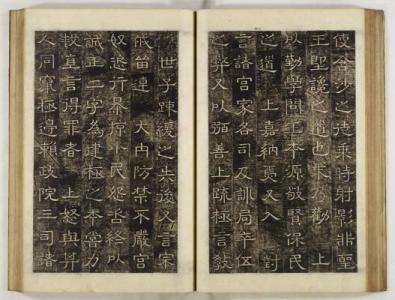 使令少之㫷乘時射影非聖
王聖讒之道也末乃勸上
以勤學問王本源敬賢保民
之道上嘉納焉又入對
言諸宮家各司及訓局竿伍
之弊又以弼善上疏極言敎
世子踈緩之失後又言宗
戚笛連大內防禁不嚴宮
奴恣行暴掠小民怨咨終以
誠正二字為建極之本當力
救直言得罪者上怒與幷
人同竄極邊賴政院三司諸